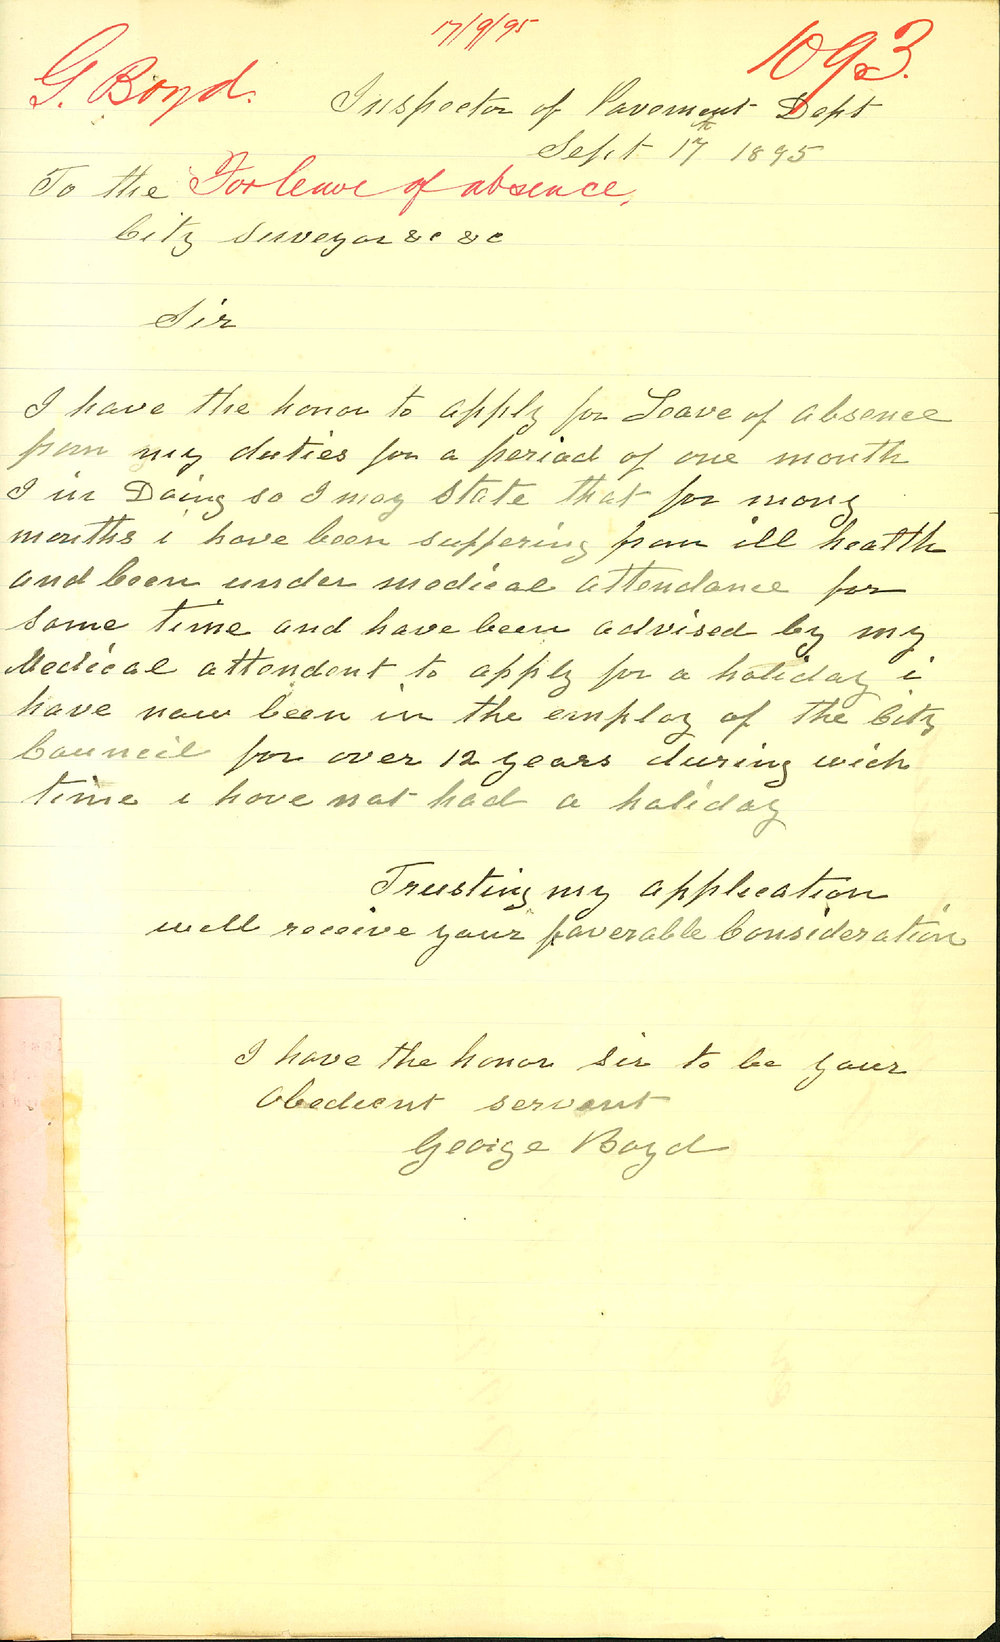 17/9/95
1093.
G. Boyd.
Inspector of Pavement Dept
Sept 17th 1895
To the
For leave of absence,
City Surveyor &c &c
Sir
I have the honor to apply for Leave of absence
from my duties for a period of one month
I in Doing so I may state that for many
months i have been suffering from ill health
and been under medical attendance for
some time and have been advised by my
Medical attendent to apply for a holiday i
have now been in the employ of the City
Council for over 12 years during wich
time i have not had a holiday
Trusting my application
will receive your faverable Consideration
I have the honor sir to be your
Obedient servant
George Boyd